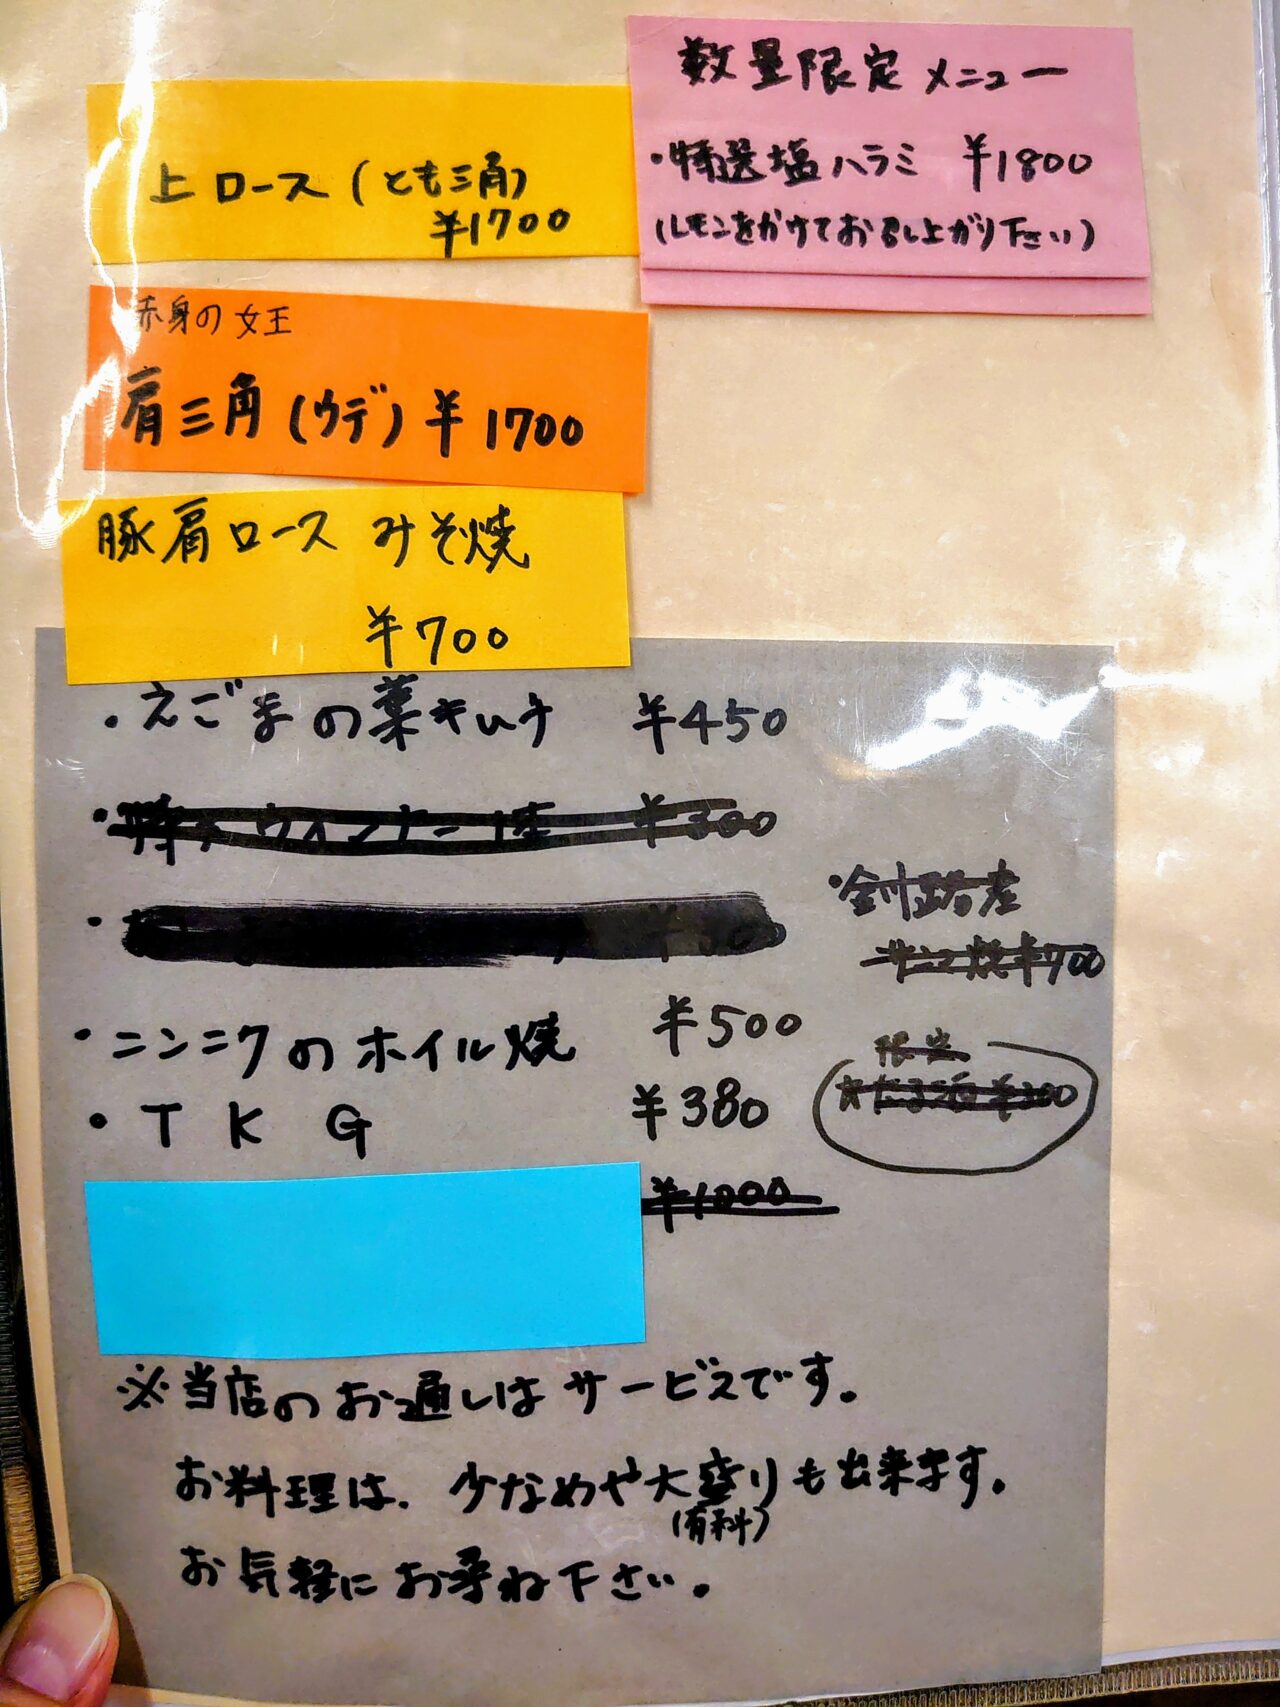 上ロース(とも三角)
¥1700
数量限定メニュー
・特選塩ハラミ ¥1800
(レモンをかけてお召し上がり下さい)
赤身の女王
肩三角(ウデ) ¥1700
豚肩ロース みそ焼
¥700
・えごまの葉キムチ ¥450
・ ウインナー 1本 ¥300
・釧路産
¥700
・ニンニクのホイル焼 ¥500
・TKG ¥380
限定
¥1000
※当店のお通しはサービスです。
お料理は、少なめや大盛りも出来ます。
(有料)
お気軽にお尋ね下さい。